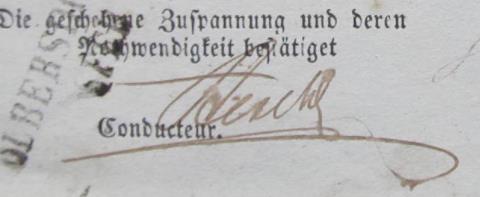 Die geschehene Zuspannung und deren
Nothwendigkeit bestätiget
Conducteur.